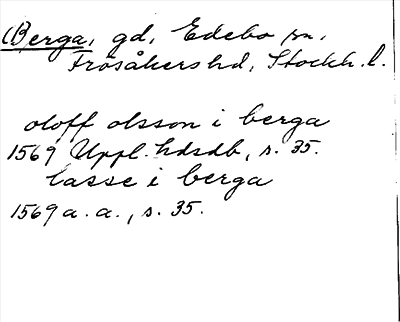 Berga, gd, Edebo sn,
Frösåkers hd, Stockh. l.
oloff olsson i berga
1569 Uppl. hdsdb, s. 35.
lasse i berga
1569 a. a., s. 35.